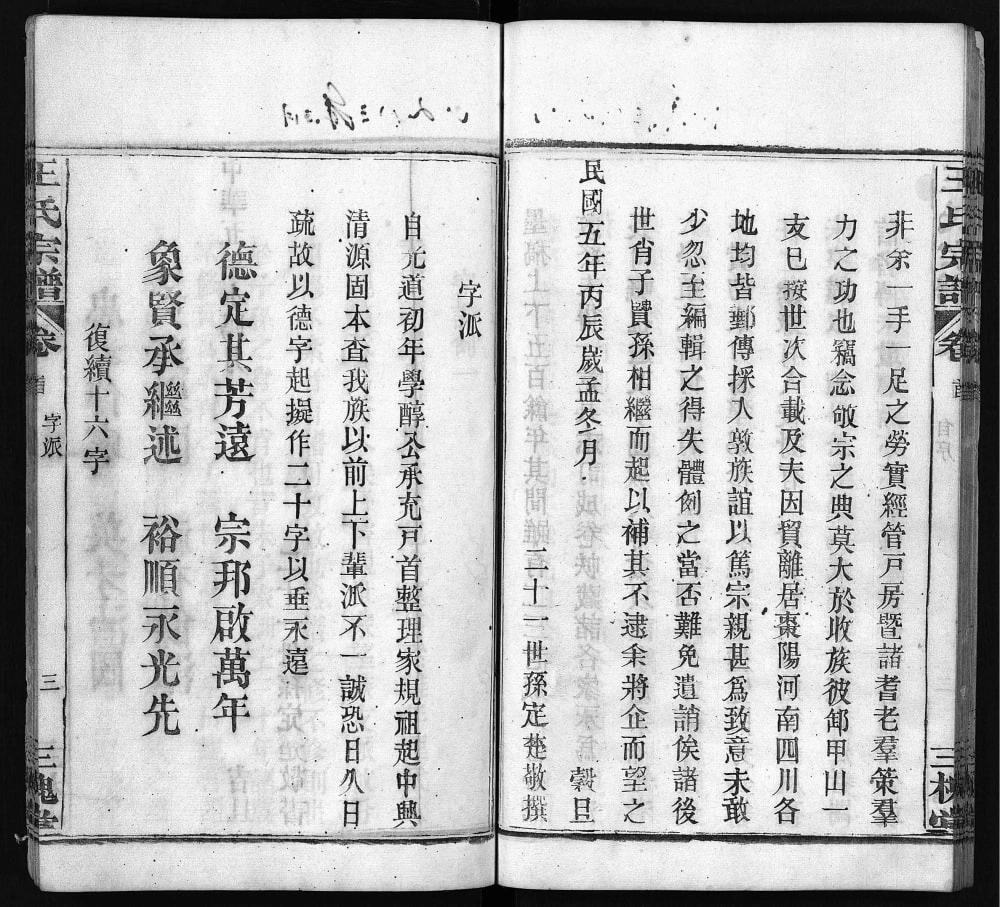 王氏宗譜 卷首 三槐堂
非余一手一足之勞實經管戸房暨諸耆老羣策羣
力之功也竊念敬宗之典莫大於收族彼卸甲山一
支已按世次合載及夫因貿離居棗陽河南四川各
地均皆郵傳採入敦族誼以篤宗親甚爲致意未敢
少忽至編輯之得失體例之當否難免遺誚俟諸後
世肖子賢孫相繼而起以補其不逮余將企而望之
民國五年丙辰歲孟冬月 穀旦
二十一世孫定楚敬撰
字派
自光道初年學醇公承充戸首整理家規祖起中興
清源固本查我族以前上下輩派不一誠恐日久日
疏故以德字起擬作二十字以垂永遠
德定其芳遠 宗邦啟萬年
象賢承繼述 裕順永光先
復續十六字
王氏宗譜 卷首 字派 三 三槐堂